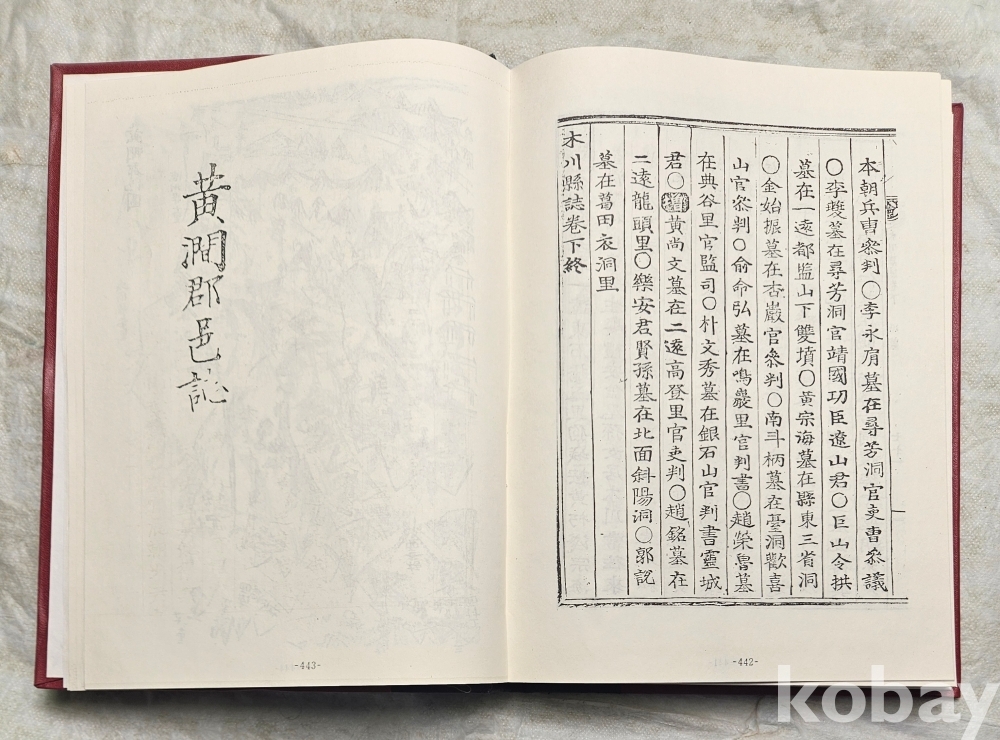 本朝兵曹叅判〇李永肩墓在尋芳洞官吏曹叅議
〇李夔墓在尋芳洞官靖國功臣遼山君〇巨山令拱
墓在一遠都監山下雙墳〇黃宗海墓在縣東三省洞
〇金始振墓在杏巖官叅判〇南斗柄墓在臺洞歡喜
山官叅判〇俞命弘墓在鳴巖里官判書〇趙榮魯墓
在典谷里官監司〇朴文秀墓在銀石山官判書靈城
君〇 黃尚文墓在二遠高登里官吏判〇趙銘墓在
二遠龍頭里〇樂安君賢孫墓在北面斜陽洞〇郭說
墓在葛田衣洞里
木川縣誌卷下終
-442-
黃澗郡邑誌
-443-
kobay